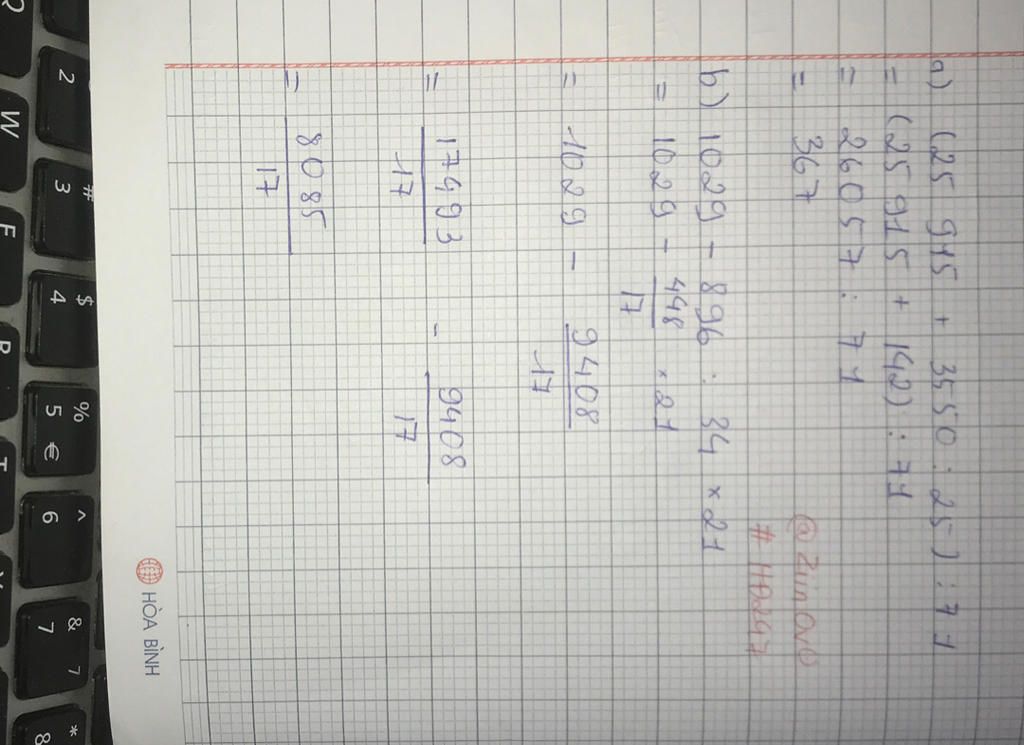 a) (25 915 + 3550 : 25) : 71
= (25 915 + 142) : 71
= 26057 : 71
= 367
@ZiinOvO
# HĐ247
b) 1029 - 896 : 34 × 21
= 1029 - 448/17 × 21
= 1029 - 9408/17
= 17493/17 - 9408/17
= 8085/17
HÒA BÌNH
Q W E R T Y
2
# 3
$ 4
% 5 €
^ 6
& 7
* 8